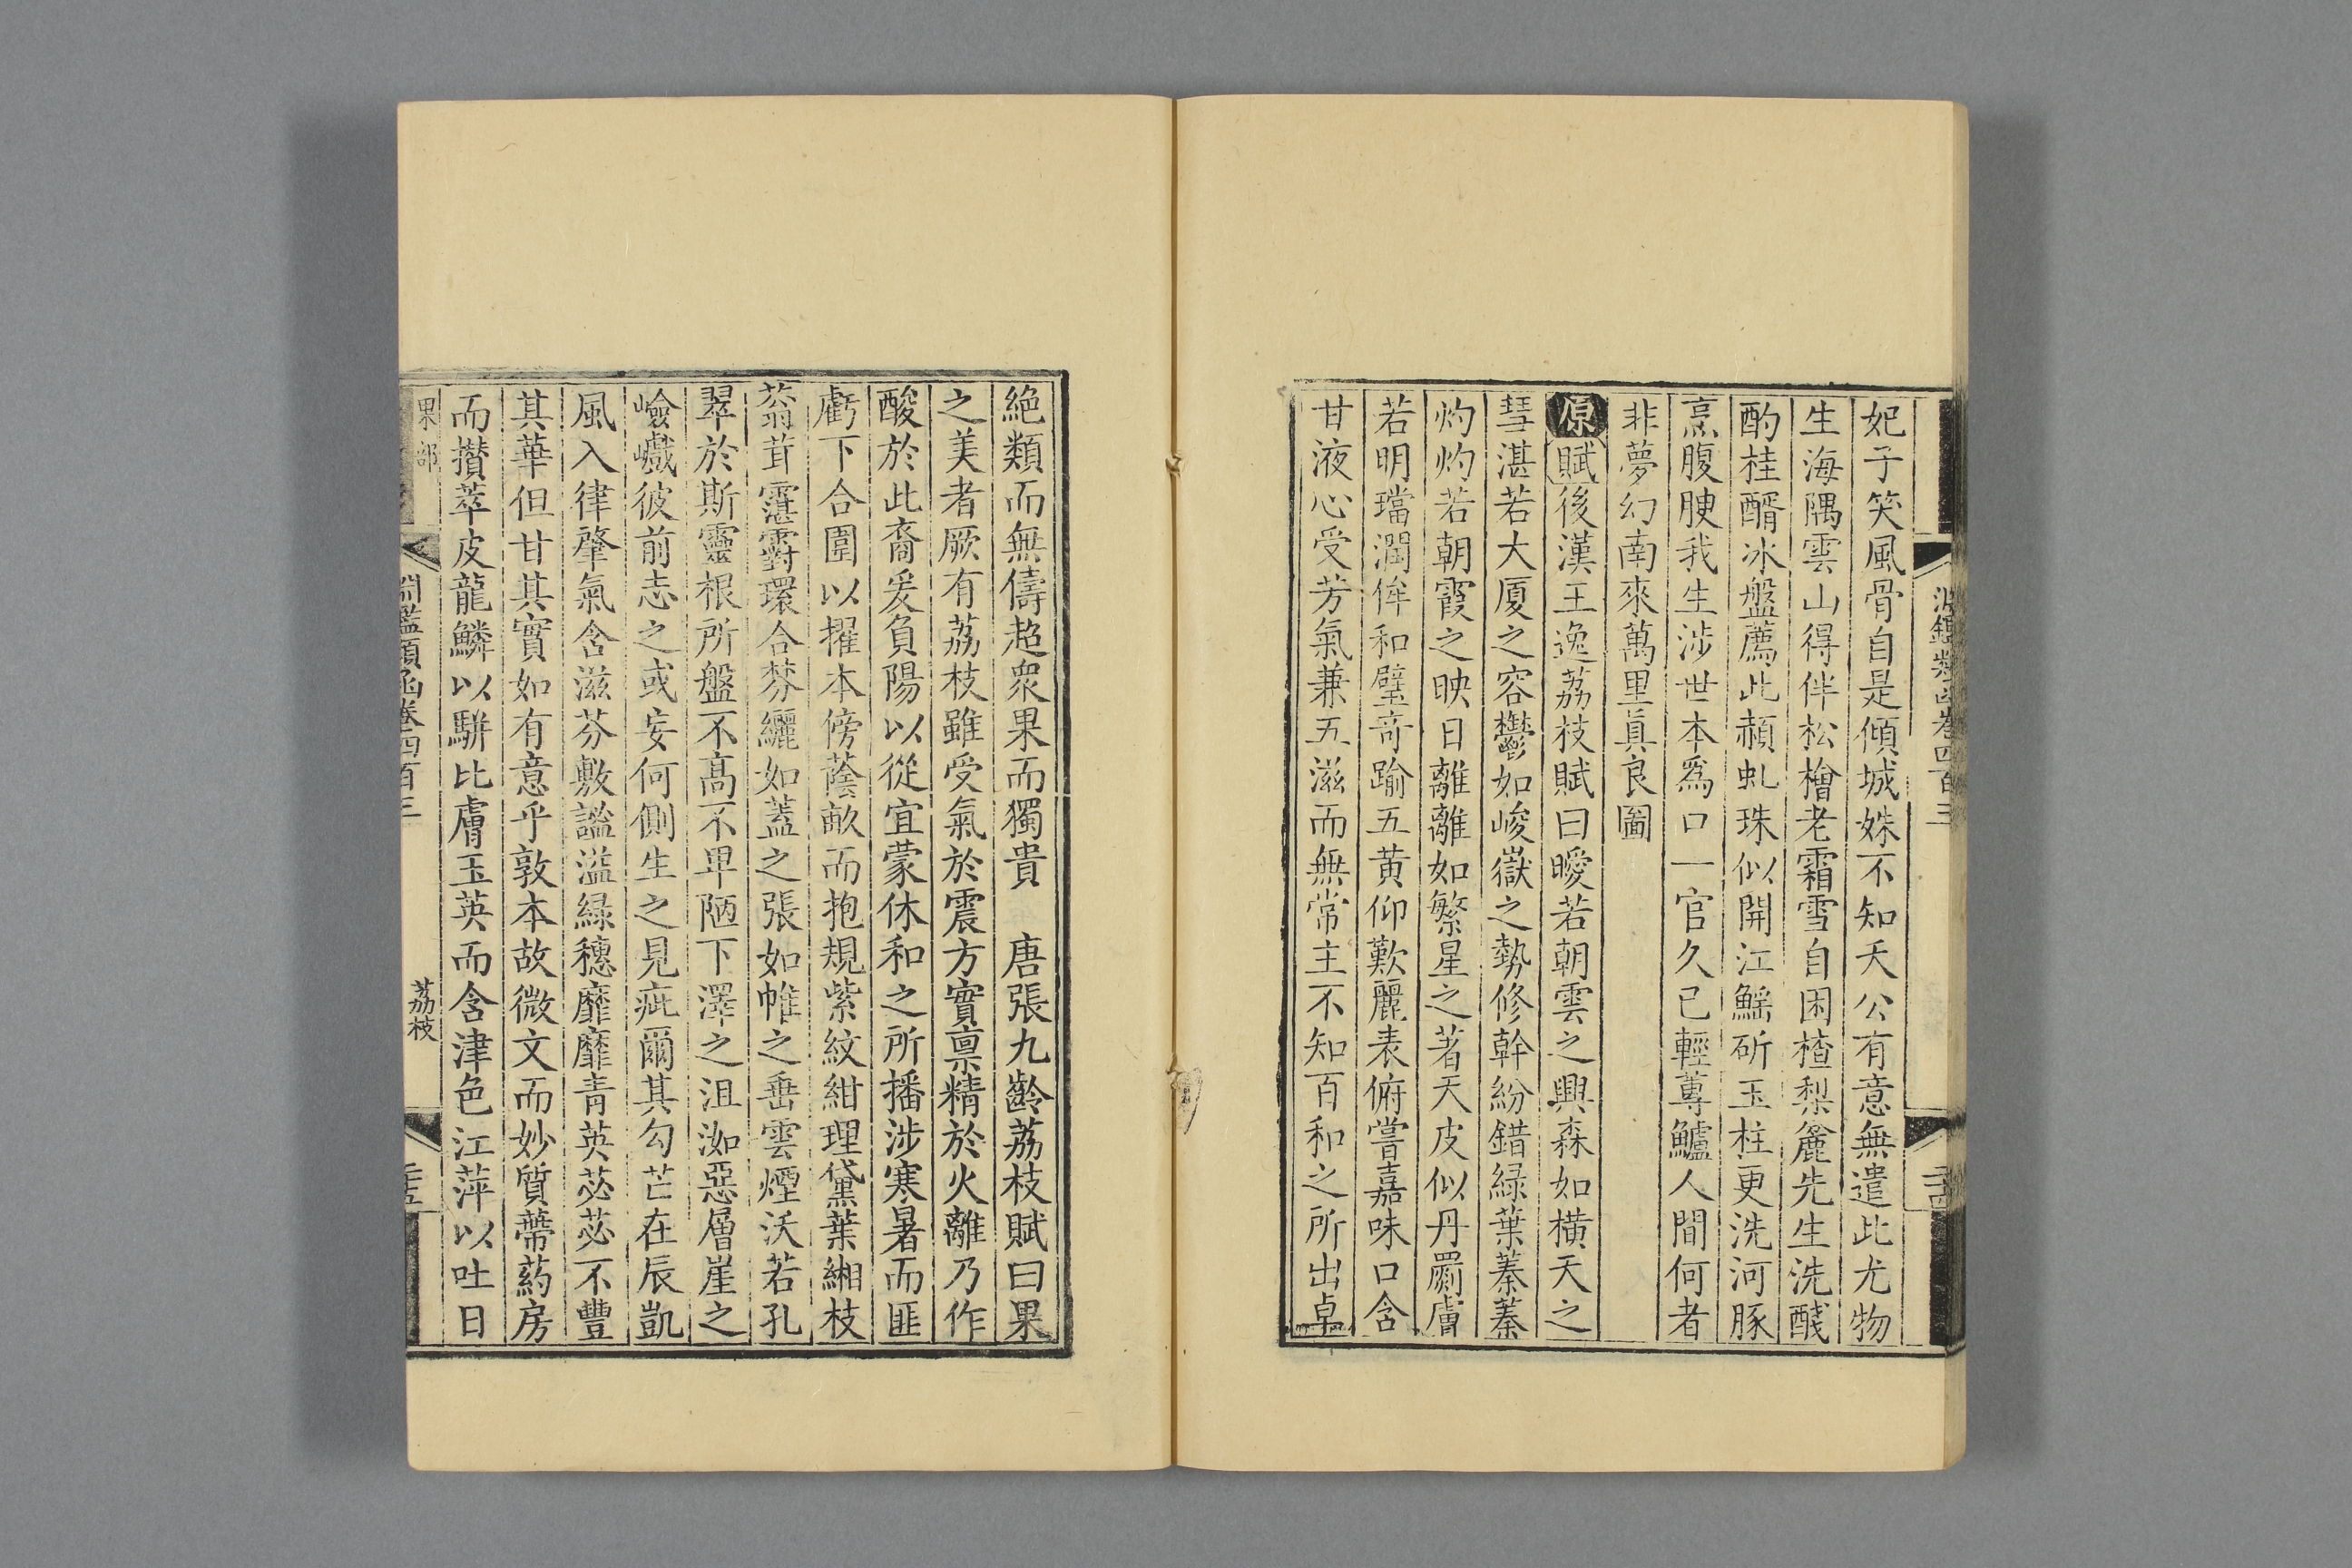 淵鑑類函卷四百三
二十四
妃子笑風骨自是傾城姝不知天公有意無遣此尤物
生海隅雲山得伴松檜老霜雪自困樝梨麄先生洗醆
酌桂醑冰盤薦此赬虬珠似開江鰩斫玉柱更洗河豚
烹腹腴我生涉世本爲口一官久已輕蓴鱸人間何者
非夢幻南來萬里眞良圖
原賦後漢王逸荔枝賦曰曖若朝雲之興森如橫天之
彗湛若大厦之容鬱如峻嶽之勢修幹紛錯緑葉蓁蓁
灼灼若朝霞之映日離離如繁星之著天皮似丹罽膚
若明璫潤侔和璧竒踰五黄仰歎麗表俯嘗嘉味口含
甘液心受芳氣兼五滋而無常主不知百和之所出卓
絶類而無儔超衆果而獨貴　唐張九齡荔枝賦曰果
之美者厥有荔枝雖受氣於震方實禀精於火離乃作
酸於此裔爰負陽以從宜蒙休和之所播涉寒暑而匪
虧下合圍以擢本傍蔭畝而抱規紫紋紺理黛葉緗枝
蓊茸霮䨴環合棼纚如蓋之張如帷之垂雲煙沃若孔
翠於斯靈根所盤不髙不卑陋下澤之沮洳惡層崖之
嶮巇彼前志之或妄何側生之見疵爾其勾芒在辰凱
風入律肇氣含滋芬敷謐溢緑穗靡靡青英苾苾不豐
其華但甘其實如有意乎敦本故微文而妙質蔕葯房
而攅萃皮龍鱗以駢比膚玉英而含津色江萍以吐日
果部
淵鑑類函卷四百三
荔枝
二十五